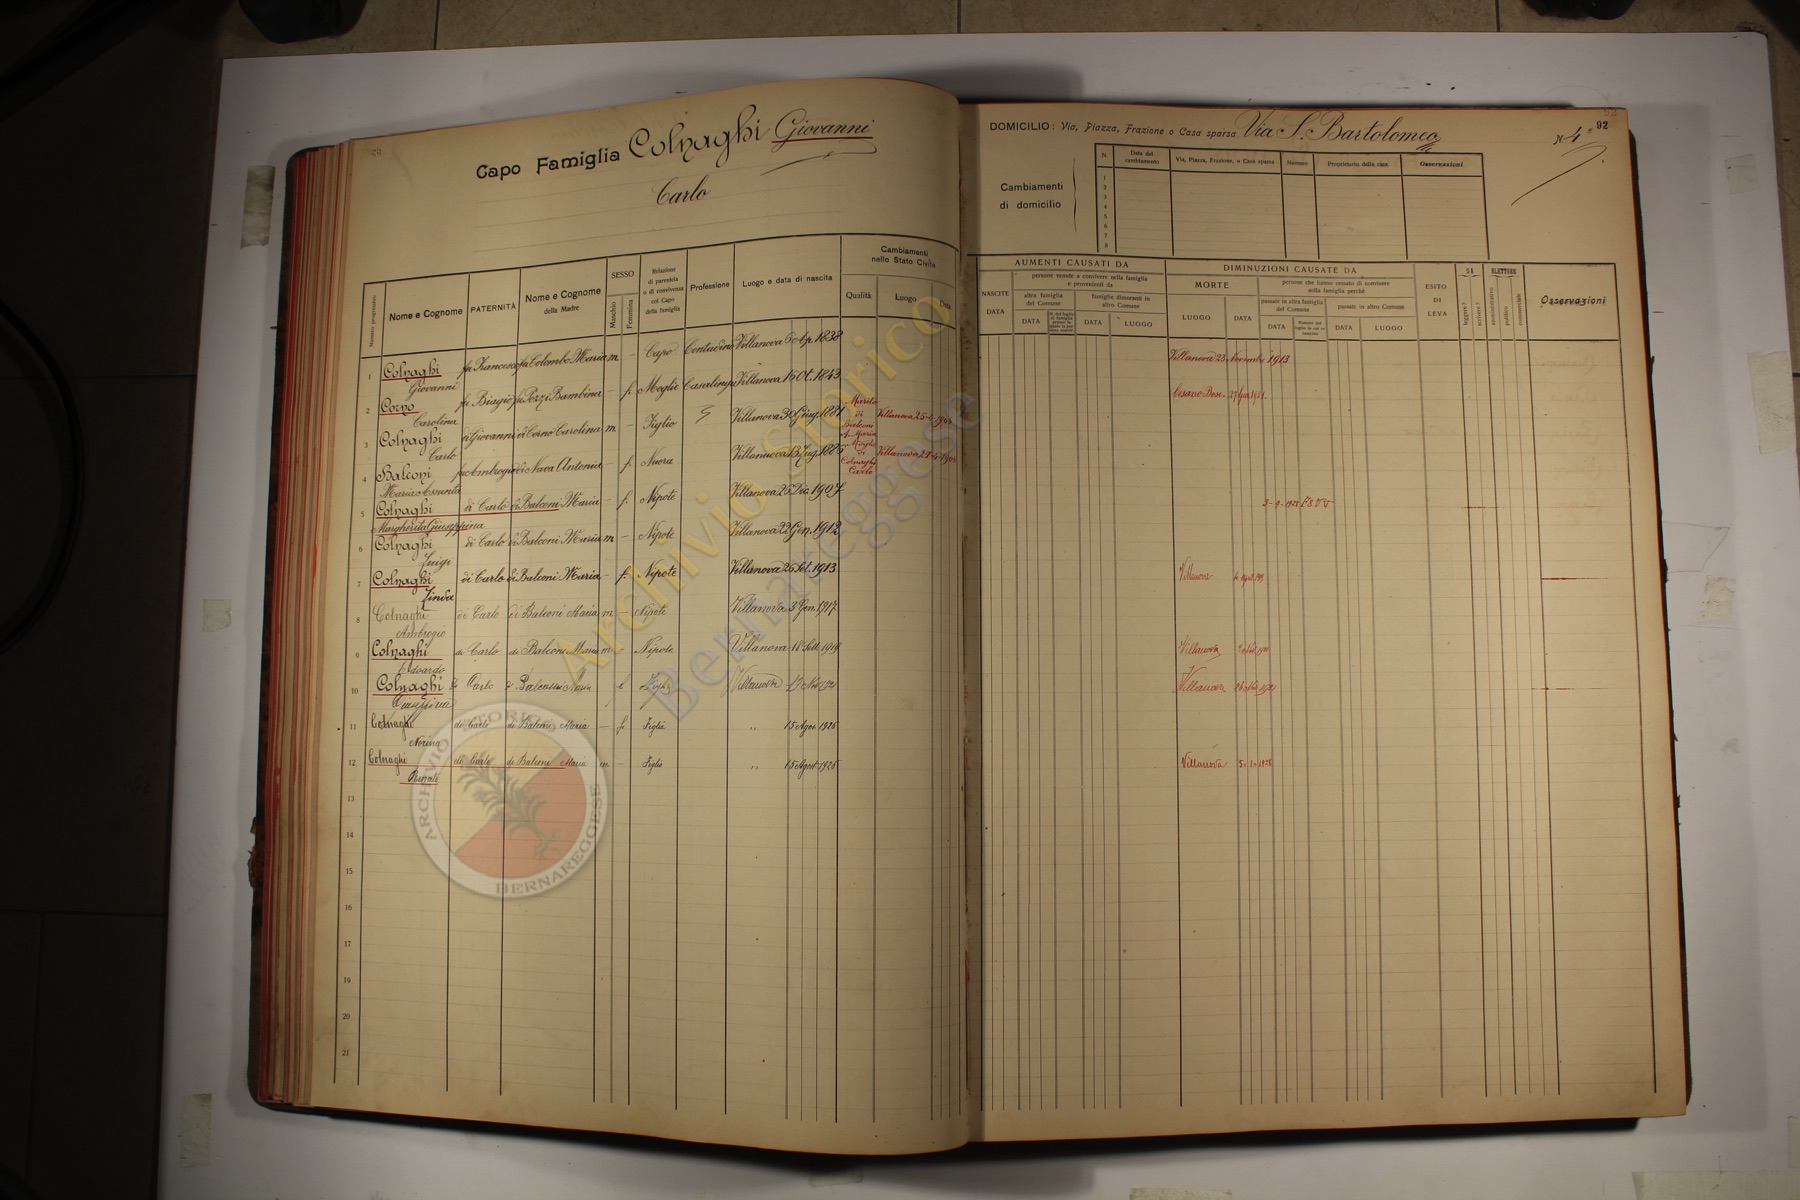 Capo Famiglia Colnaghi Giovanni
Carlo
DOMICILIO: Via, Piazza, Frazione o Casa sparsa Via S. Bartolomeo N. 4
92
Cambiamenti
di domicilio
N. Data del cambiamento Via, Piazza, Frazione, o Casa sparsa Numero Proprietario della casa Osservazioni
1
2
3
4
5
6
7
8
Numero progressivo Nome e Cognome PATERNITÀ Nome e Cognome della Madre SESSO Maschio Femmina Relazione di parentela o di convivenza col Capo della famiglia Professione Luogo e data di nascita Cambiamenti nello Stato Civile Qualità Luogo Data
AUMENTI CAUSATI DA
NASCITE DATA
persone venute a convivere nella famiglia e provenienti da
altra famiglia del Comune DATA
famiglie dimoranti in altro Comune DATA LUOGO
DIMINUZIONI CAUSATE DA
MORTE LUOGO DATA
persone che hanno cessato di convivere nella famiglia perchè
passate in altra famiglia del Comune DATA
passate in altro Comune DATA LUOGO
ESITO DI LEVA
SA leggere? scrivere?
ELETTORE amministrativo politico commerciale
Osservazioni
1 Colnaghi Giovanni fu Francesco fu Colombo Maria m. – Capo Contadino Villanova 6 Ap. 1838 Villanova 23 Novembre 1913
2 Corno Carolina fu Biagio fu Pozzi Bambina – f. Moglie Casalinga Villanova 15 Ot. 1843
3 Colnaghi Carlo di Giovanni di Corno Carolina m – Figlio Villanova 30 Giug. 1881 Marito di Balconi Maria Villanova
4 Balconi Maria Assunta fu Ambrogio di Nava Antonia – f. Nuora Moglie di Colnaghi Carlo Villanova
5 Colnaghi Margherita Giuseppina di Carlo di Balconi Maria – f. Nipote Villanova 25 Dic. 1907
6 Colnaghi Luigi di Carlo di Balconi Maria m – Nipote Villanova 22 Gen. 1912
7 Colnaghi Linda di Carlo di Balconi Maria – f. Nipote Villanova 26 Set. 1913 Villanova
8 Colnaghi Ambrogio di Carlo di Balconi Maria m – Nipote Villanova 3 Gen. 1917
9 Colnaghi Edoardo di Carlo di Balconi Maria m – Nipote Villanova 18 Sett. 1919 Villanova
10 Colnaghi Giuseppina Carlo Villanova Villanova
11 Colnaghi Norina di Carlo di Balconi Maria – f. Figlia " 15 Ago. 1926
12 Colnaghi Renato di Carlo di Balconi Maria m – Figlio " 15 Agost. 1926 Villanova
13
14
15
16
17
18
19
20
21
Archivio Storico
Bernareggese
ARCHIVIO STORICO
BERNAREGGESE